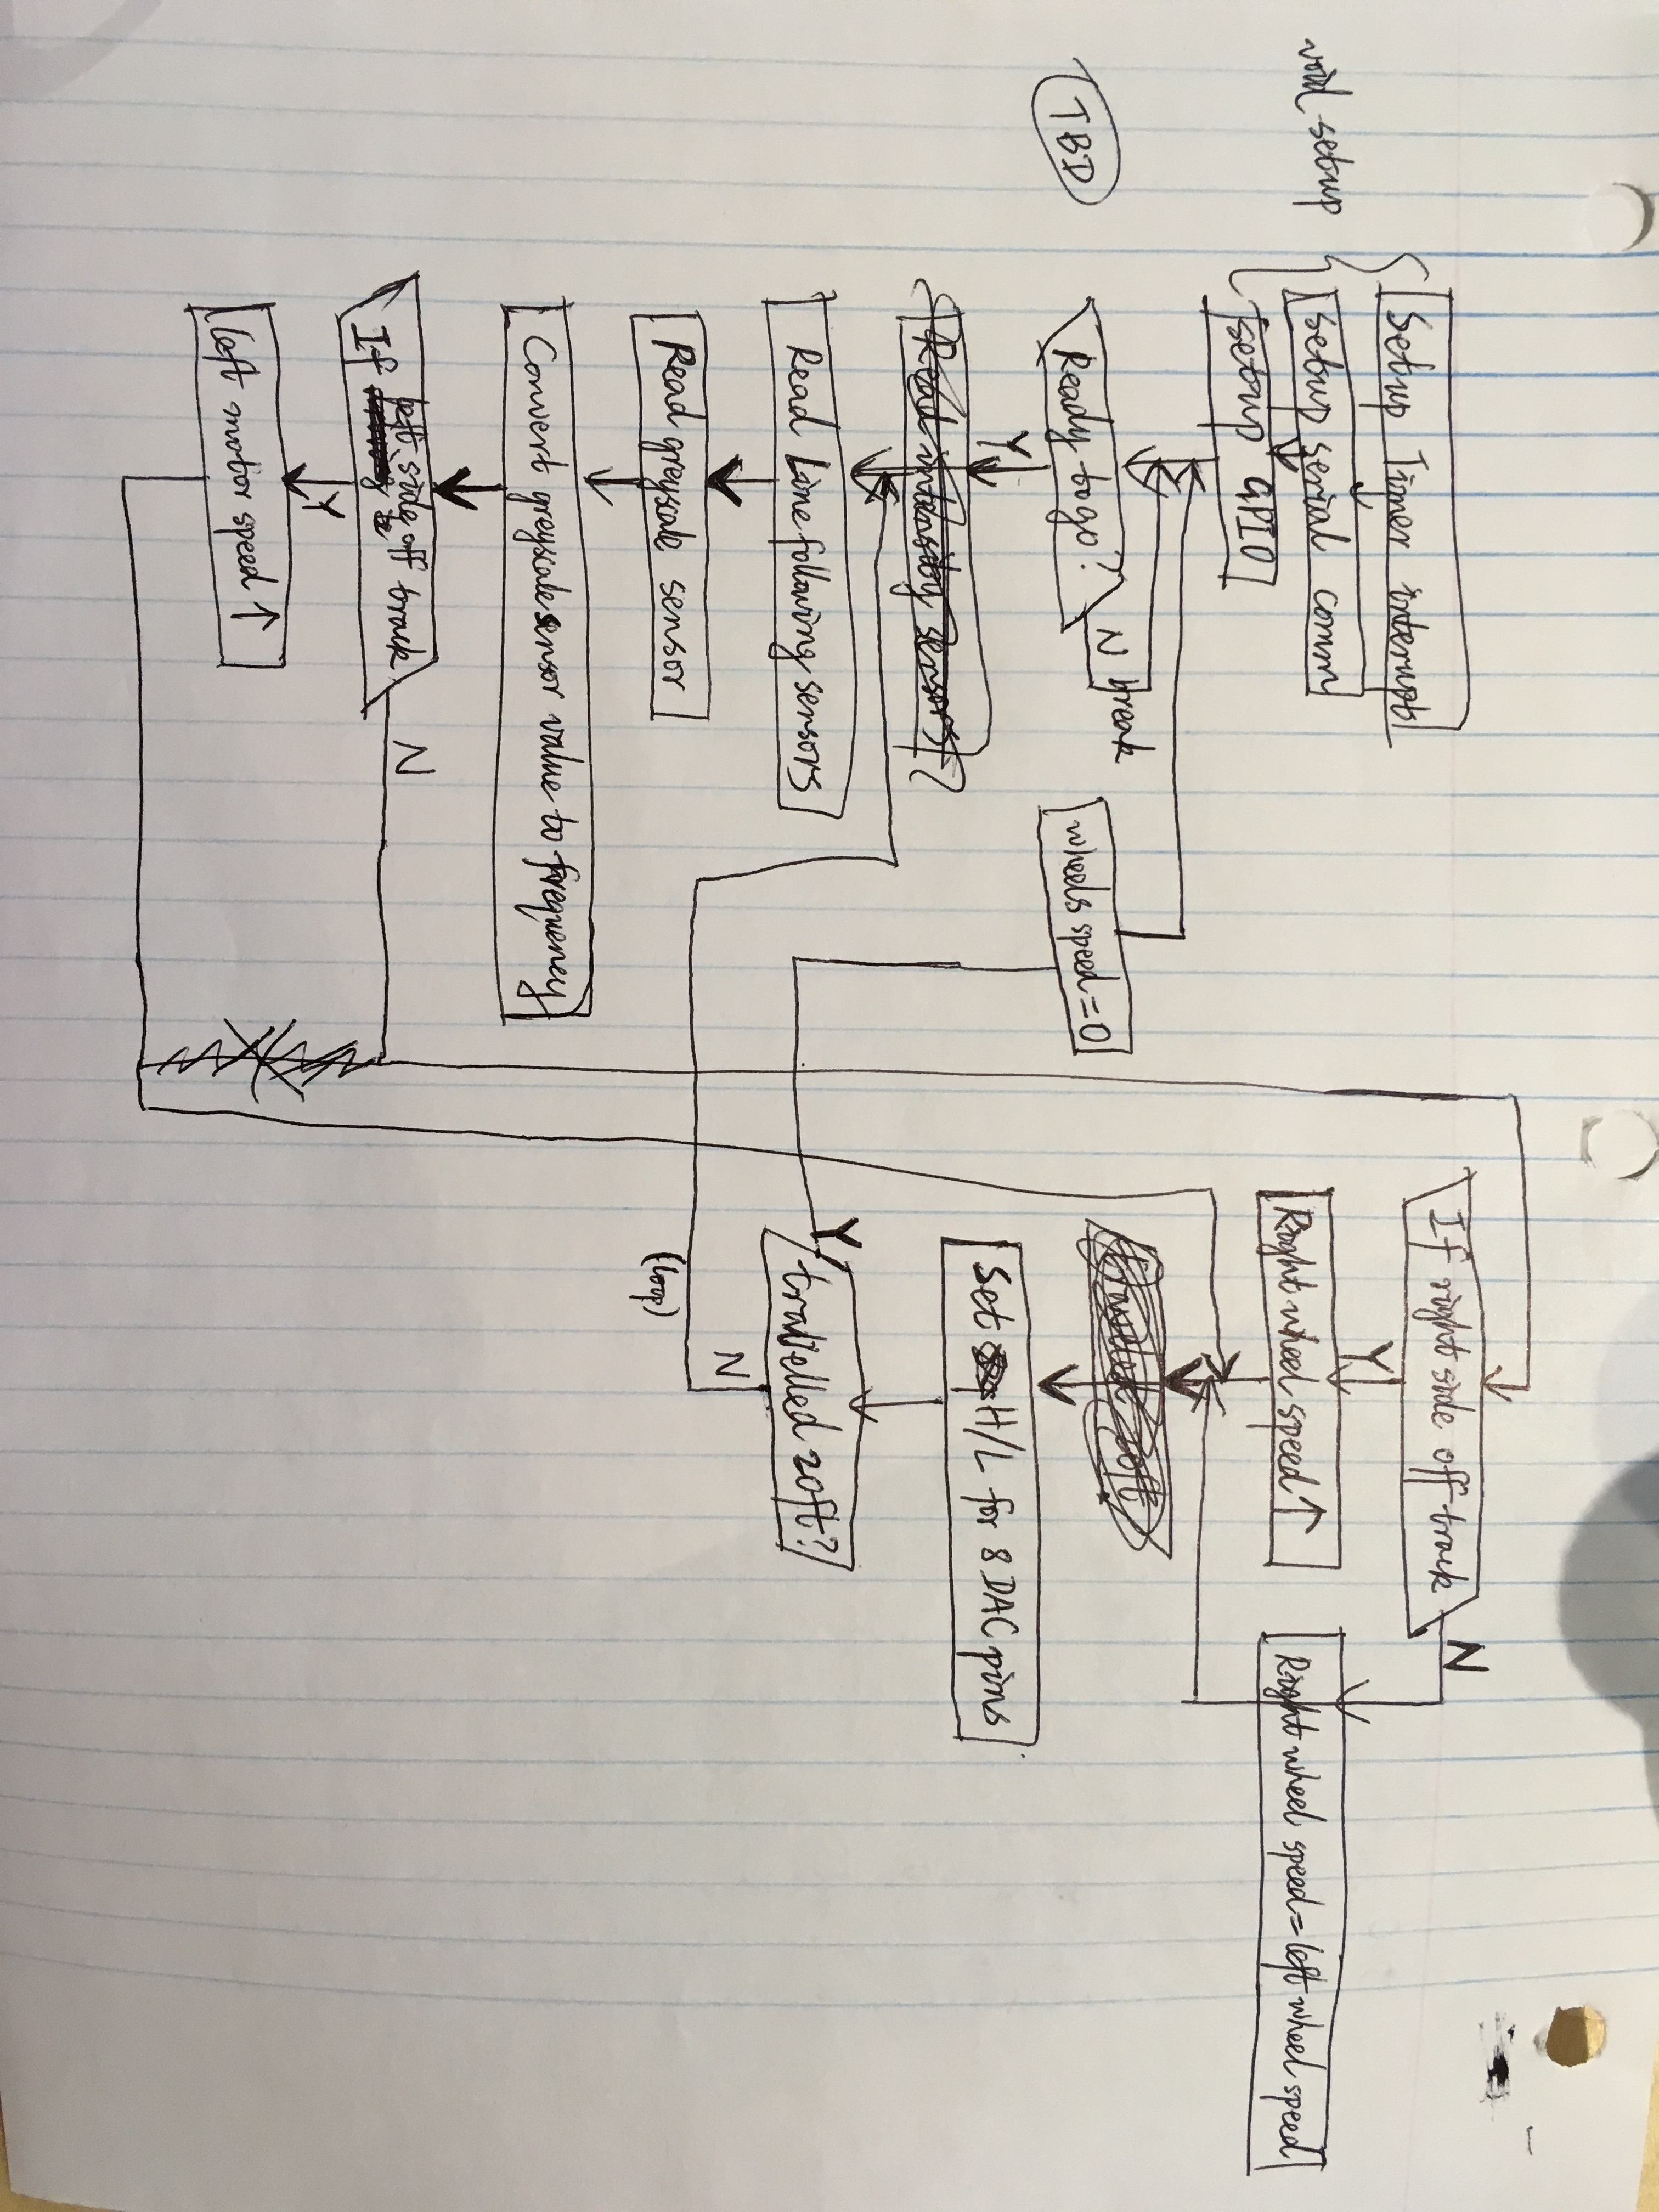 void setup
Setup Timer interrupt
Setup serial comm
Setup GPIO
TBD
Ready to go?
N
break
Y
Read intensity sensors?
Read Line following sensors
Read greyscale sensor
Convert greyscale sensor value to frequency
If left side off track
N
Y
left motor speed ↑
wheels speed = 0
If right side off track
N
Y
Right wheel speed ↑
Right wheel speed = left wheel speed
travelled 20ft
Set H/L for 8 DAC pins
Y
travelled 20ft?
N
(loop)